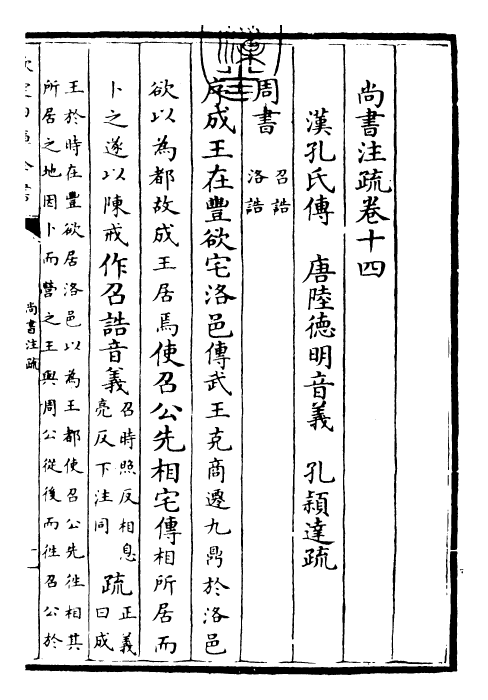 尚書注疏卷十四
漢孔氏傳　唐陸德明音義　孔穎達疏
周書
召誥
洛誥
序成王在豐欲宅洛邑傳武王克商遷九鼎於洛邑
欲以為都故成王居焉使召公先相宅傳相所居而
卜之遂以陳戒作召誥音義召時照反相息亮反下注同疏正義曰成
王於時在豐欲居洛邑以為王都使召公先往相其
所居之地因卜而營之王與周公從後而往召公於
尚書注疏